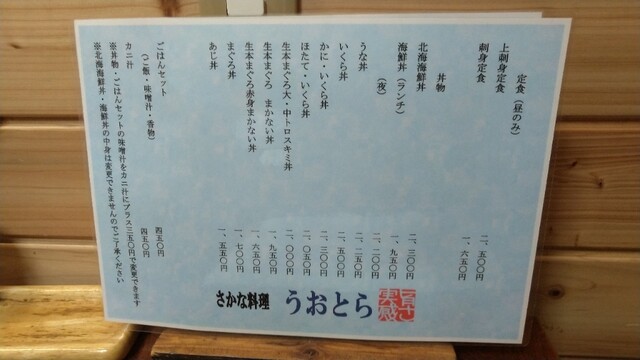 定食（昼のみ）
上刺身定食 二、五〇〇円
刺身定食 一、六五〇円
丼物
北海海鮮丼 二、三〇〇円
海鮮丼（ランチ） 一、九五〇円
（夜） 二、二〇〇円
うな丼 二、二五〇円
いくら丼 二、五〇〇円
かに・いくら丼 二、三〇〇円
ほたて・いくら丼 二、〇五〇円
生本まぐろ大・中トロスキミ丼 二、〇〇〇円
生本まぐろ まかない丼 一、九五〇円
生本まぐろ赤身まかない丼 一、六五〇円
まぐろ丼 一、七〇〇円
あじ丼 一、五五〇円
ごはんセット 四五〇円
（ご飯・味噌汁・香物）
カニ汁 四五〇円
※丼物・ごはんセットの味噌汁をカニ汁にプラス三五〇円で変更できます
※北海海鮮丼・海鮮丼の中身は変更できませんのでご了承ください
さかな料理 うおとら
旨さ実感